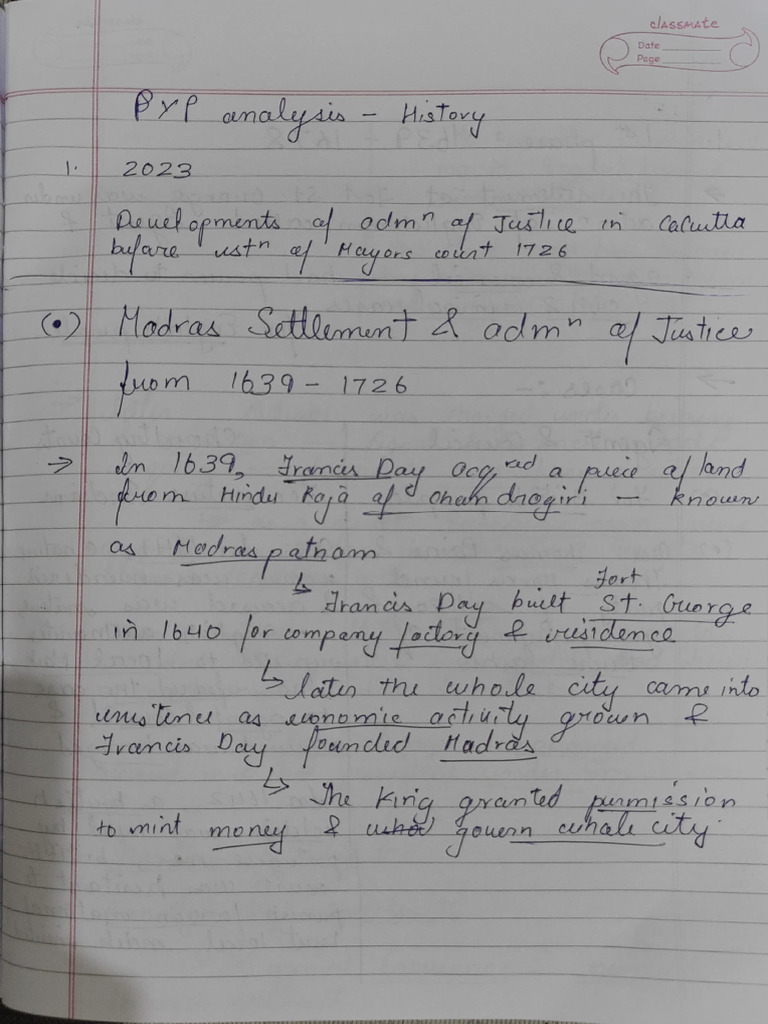 classmate
Date
Page
PYP analysis - History
1. 2023
Developments of admⁿ of Justice in Calcutta
before estⁿ of Mayors court 1726
(•) Madras Settlement & admⁿ of Justice
from 1639 - 1726
→ In 1639, Francis Day acq^red a piece of land
from Hindu Raja of Chandragiri - known
as Madraspatnam
↳ Francis Day built Fort St. George
in 1640 for company factory & residence
↳ later the whole city came into
existence as economic activity grown &
Francis Day founded Madras
↳ The King granted permission
to mint money & govern whole city.